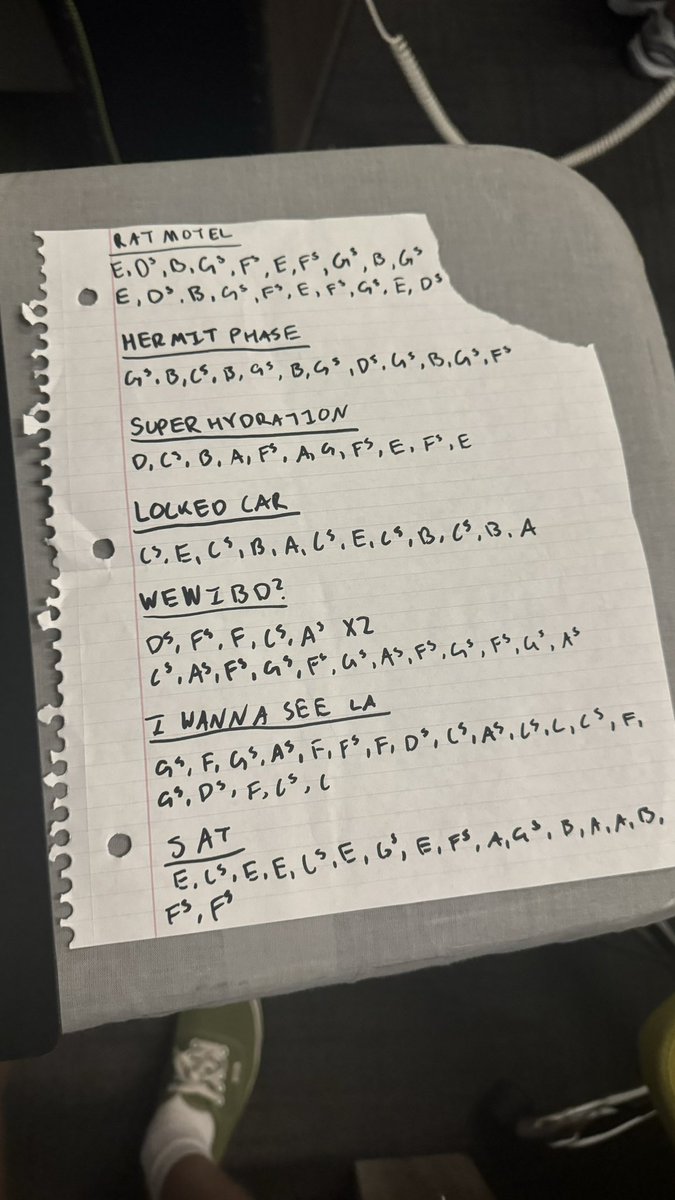 RAT MOTEL
E, Dˢ, B, Gˢ, Fˢ, E, Fˢ, Gˢ, B, Gˢ
E, Dˢ, B, Gˢ, Fˢ, E, Fˢ, Gˢ, E, Dˢ
HERMIT PHASE
Gˢ, B, Cˢ, B, Gˢ, B, Gˢ, Dˢ, Gˢ, B, Gˢ, Fˢ
SUPER HYDRATION
D, Cˢ, B, A, Fˢ, A, G, Fˢ, E, Fˢ, E
LOCKED CAR
Cˢ, E, Cˢ, B, A, Cˢ, E, Cˢ, B, Cˢ, B, A
WEWIBD?
Dˢ, Fˢ, F, Cˢ, Aˢ X2
Cˢ, Aˢ, Fˢ, Gˢ, Fˢ, Gˢ, Aˢ, Fˢ, Gˢ, Fˢ, Gˢ, Aˢ
I WANNA SEE LA
Gˢ, F, Gˢ, Aˢ, F, Fˢ, F, Dˢ, Cˢ, Aˢ, Cˢ, C, Cˢ, F,
Gˢ, Dˢ, F, Cˢ, C
SAT
E, Cˢ, E, E, Cˢ, E, Gˢ, E, Fˢ, A, Gˢ, B, A, A, B,
Fˢ, Fˢ